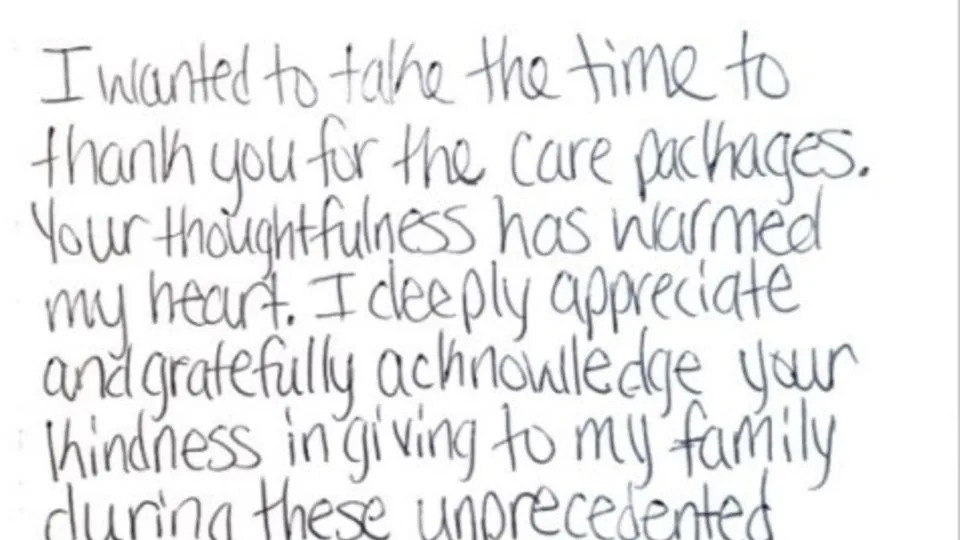 I wanted to take the time to
thank you for the care packages.
Your thoughtfulness has warmed
my heart. I deeply appreciate
and gratefully acknowledge your
kindness in giving to my family
during these unprecedented